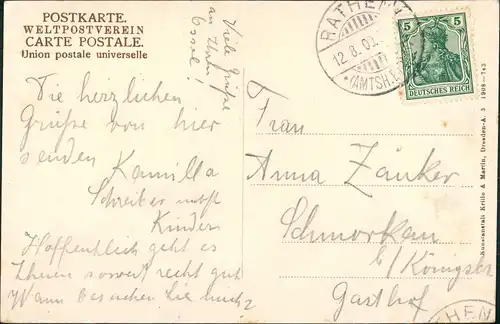 POSTKARTE.
WELTPOSTVEREIN
CARTE POSTALE.
Union postale universelle
Viele Grüße
an Ihren
RATHEN
12.8.09
(AMTSH.
5 5
DEUTSCHES REICH
Die herzlichen
Grüße von hier
senden Kamilla
Schreiber nebst
Kindern
Hoffentlich geht es
Ihnen soweit recht gut
Wann besuchen Sie uns?
Frau
Anna Zänker
Schmorkau
b/Königsbr
Gasthof
Kunstanstalt Krille & Martin, Dresden-A. 3 1909-743
HEN